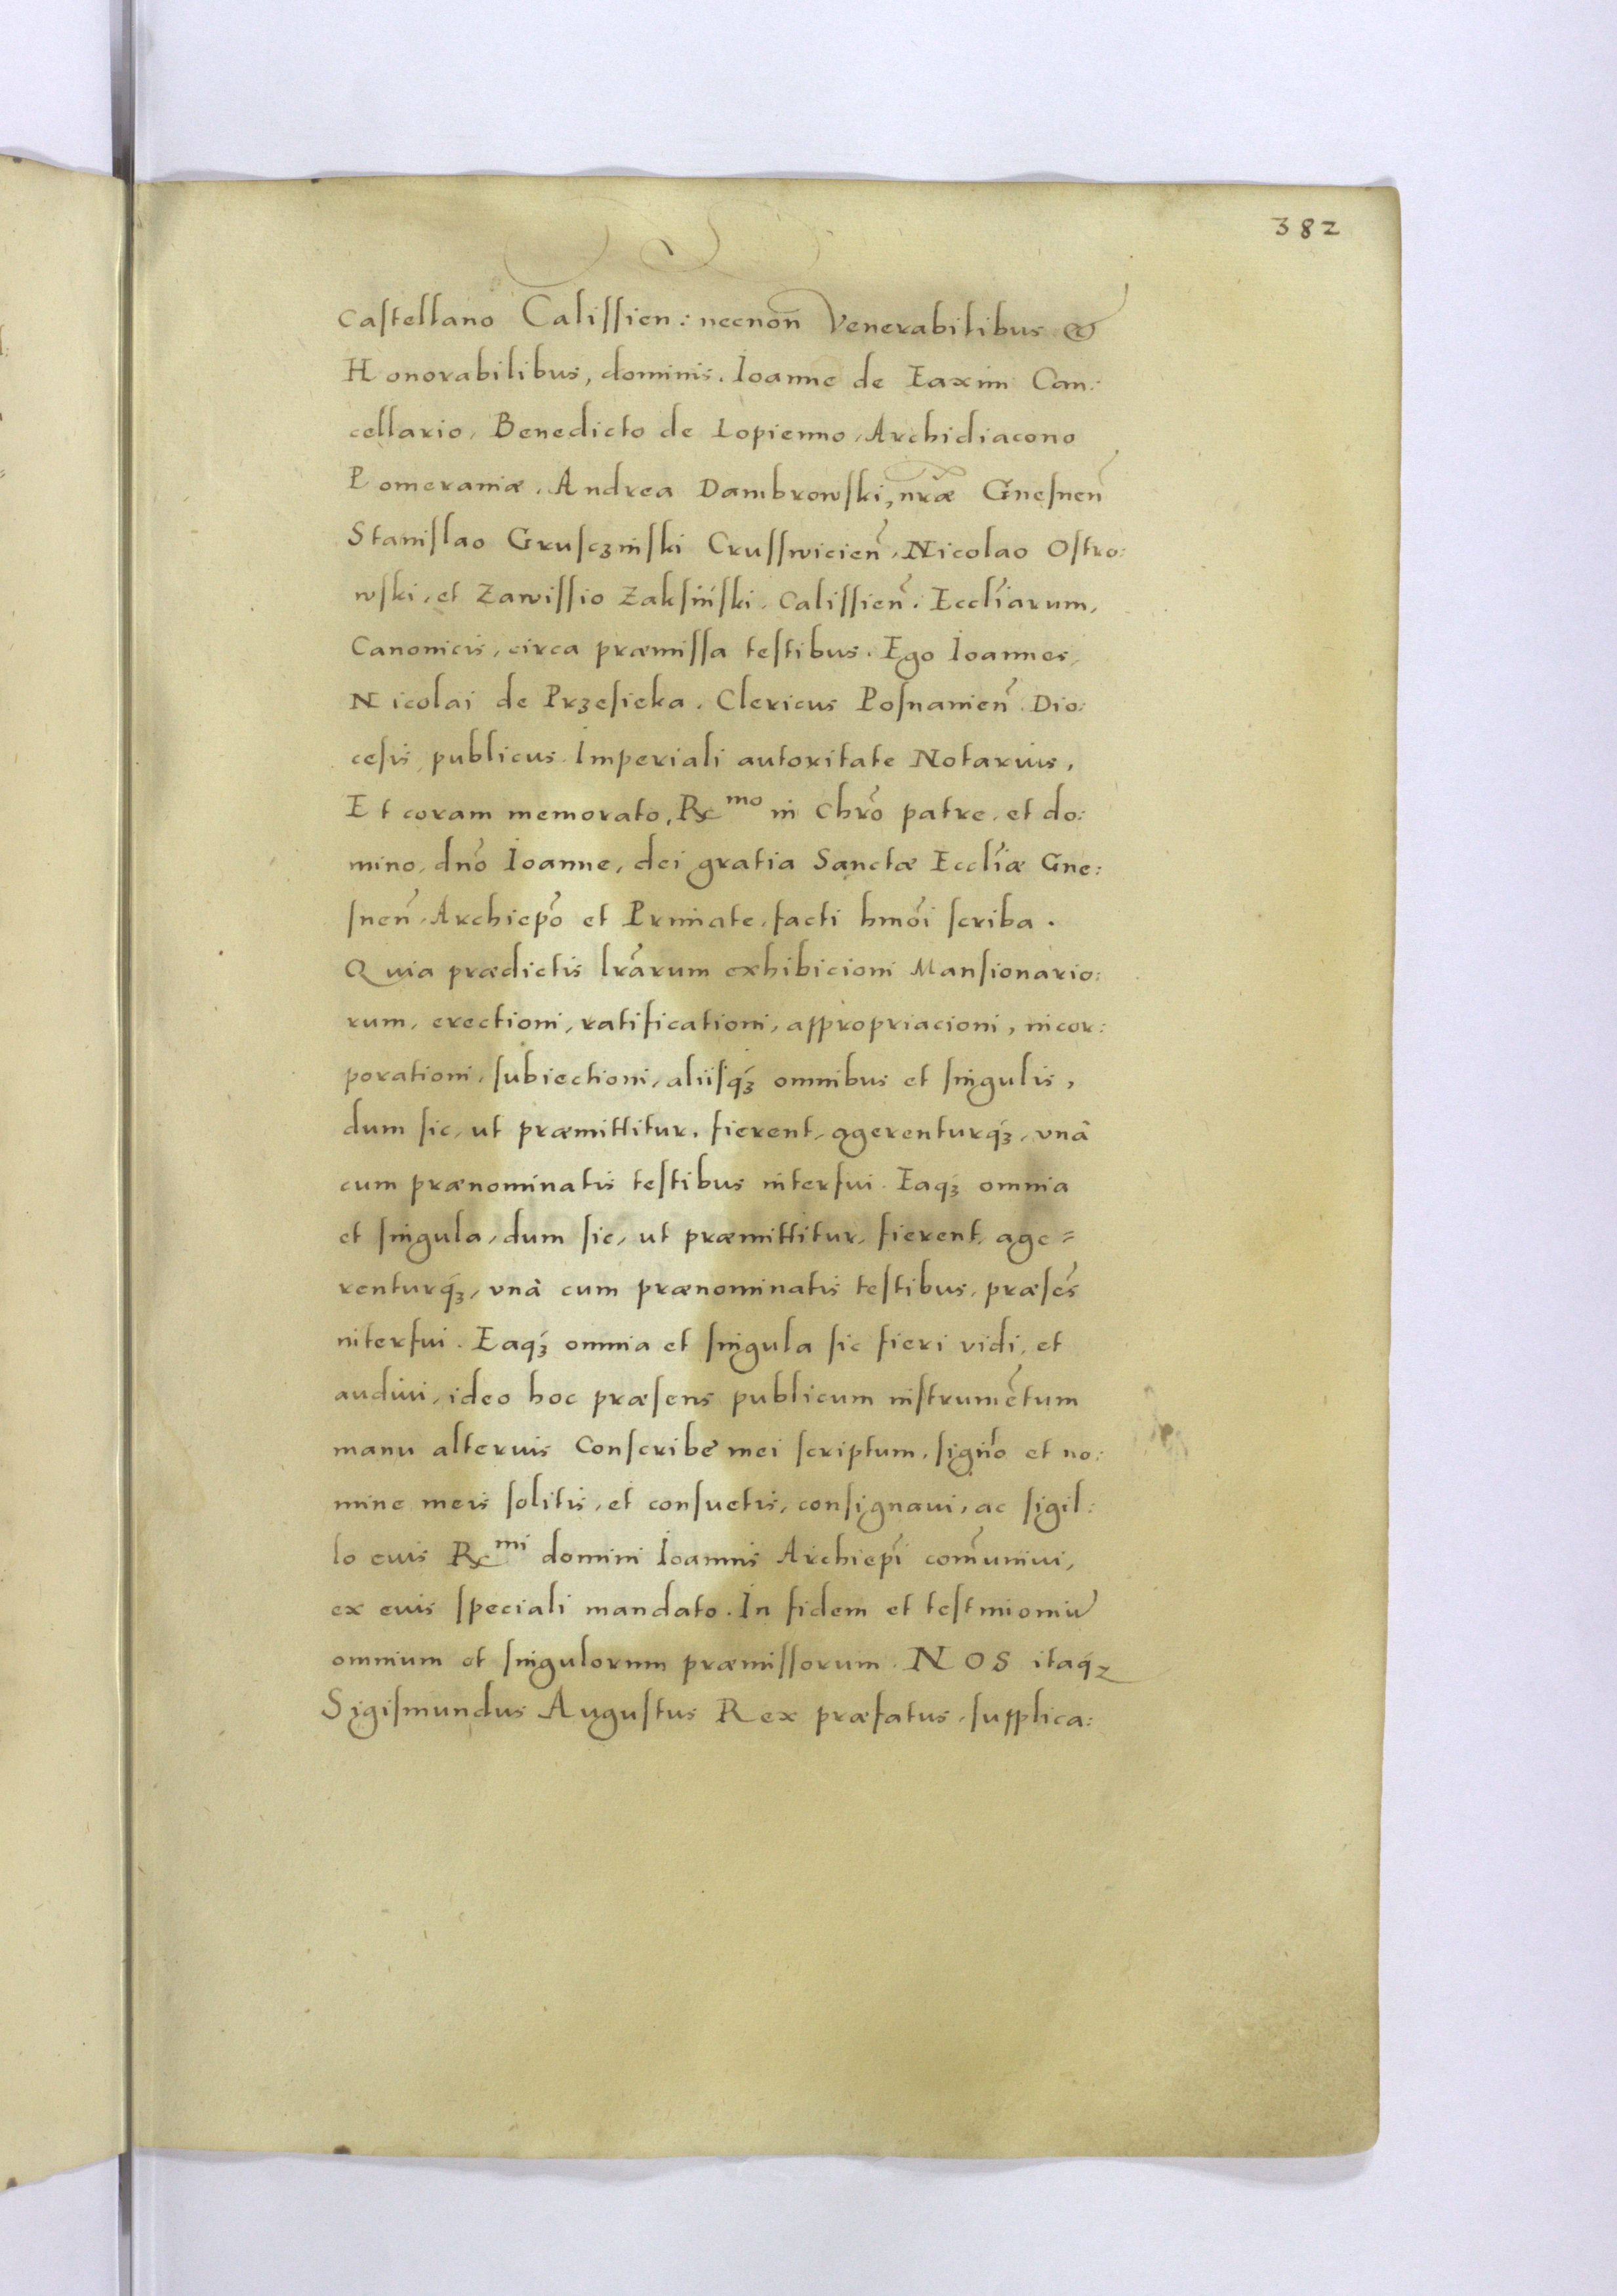 382
Castellano Calissien: necnon̄ Venerabilibus &
Honorabilibus, dominis. Ioanne de Iaxini Can:
cellario, Benedicto de Lopienno, Archidiacono
Pomeraniæ, Andrea Dambrowski, nr̃æ Gnesnen̄
Stanislao Grusczinski Crusswicien̄, Nicolao Ostro:
wski, et Zawissio Zaksinski, Calissien̄. Eccl̃iarum,
Canonicis, circa præmissa testibus. Ego Ioannes,
Nicolai de Przesieka. Clericus Posnanien̄. Dio:
cesis publicus Imperiali autoritate Notarius,
Et coram memorato, R^mo in Chr̃o patre, et do:
mino, dño Ioanne, dei gratia Sanctæ Eccl̃iæ Gne:
snen̄, Archiep̃o et Primate, facti hmõi scriba.
Quia prædictis lr̃arum exhibicioni Mansionario:
rum, erectioni, ratificationi, appropriacioni, incor:
porationi, subiectioni, aliisq́ꝫ omnibus et singulis,
dum sic, ut præmittitur, fierent, agerenturq́ꝫ, vnà
cum prænominatis testibus interfui. Eaq́ꝫ omnia
et singula, dum sic, ut præmittitur, fierent, age=
renturq́ꝫ, vnà cum prænominatis testibus, præsẽs
interfui. Eaq́ꝫ omnia et singula sic fieri vidi, et
audiui, ideo hoc præsens publicum instrumẽtum
manu alterius Conscribẽ mei scriptum, signo et no:
mine meis solitis, et consuetis, consignaui, ac sigil:
lo euis R^mi domini Ioannis Archiep̃i com̃uniui,
ex euis speciali mandato. In fidem et testimoniũ
omnium et singulorum præmissorum. NOS itaq́ꝫ
Sigismundus Augustus Rex præfatus, supplica: